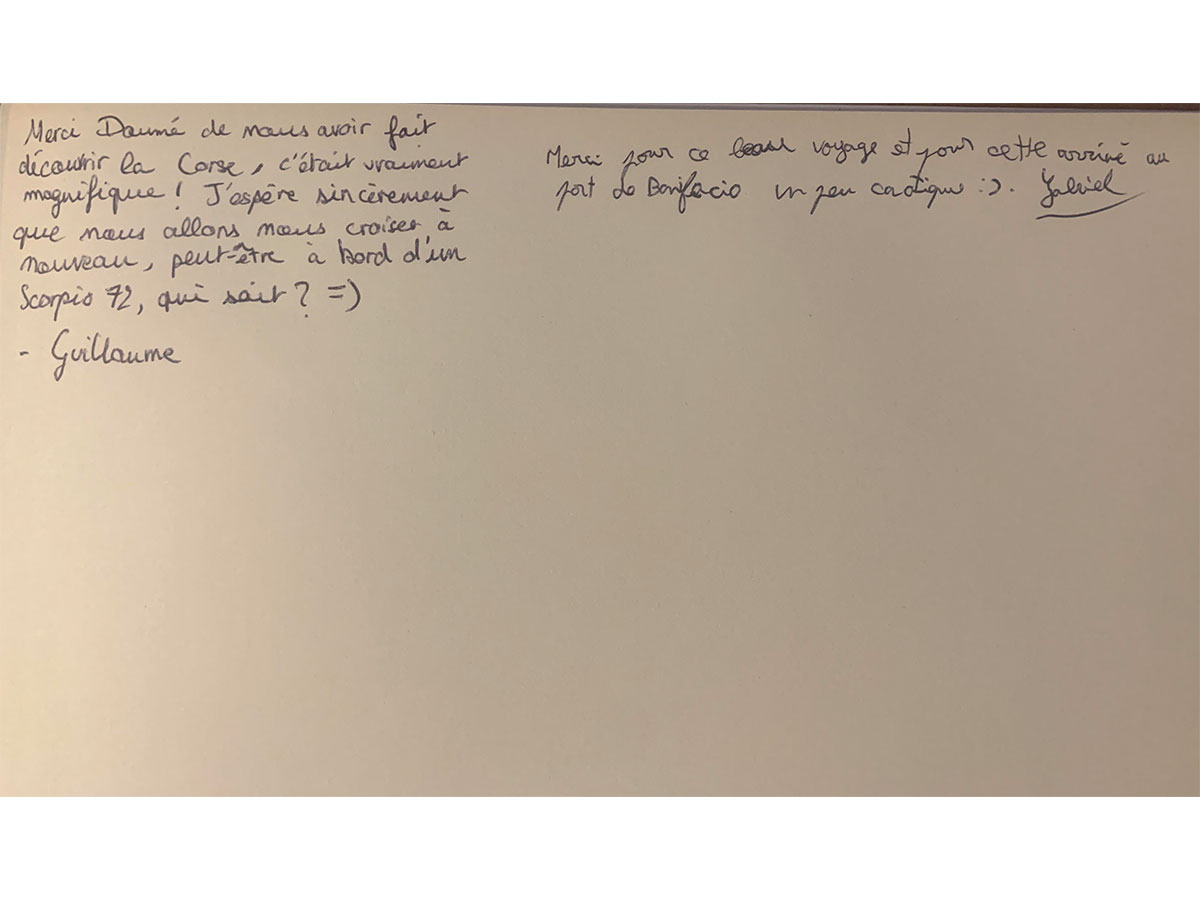 Merci Doumé de nous avoir fait
découvrir la Corse, c'était vraiment
magnifique ! J'espère sincèrement
que nous allons nous croiser à
nouveau, peut-être à bord d'un
Scorpio 72, qui sait ? =)
- Guillaume
Merci pour ce beau voyage et pour cette arrivé au
port de Bonifacio un peu caotique :).